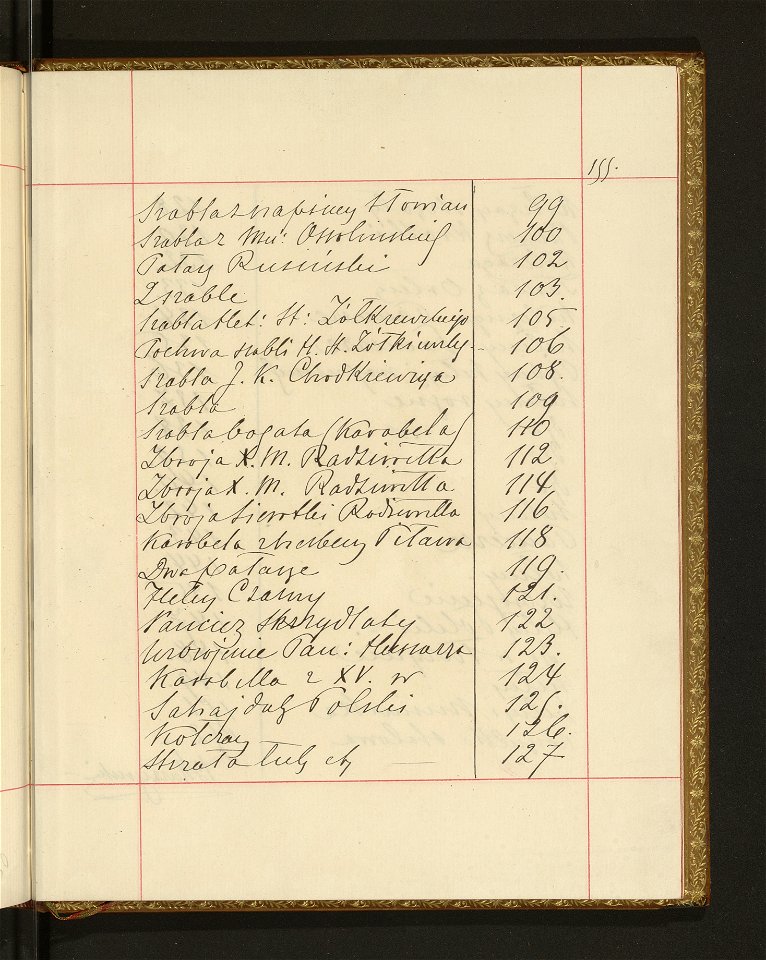 155.
Szabla z napisem Słowian 99
Szabla z Mu: Ossolińskich 100
Pałasz Rusiński 102
2 szable 103.
Szabla Het: St: Żółkiewskiego 105
Pochwa szabli H. St. Żółkiewsky. 106
Szabla J. K. Chodkiewicza 108.
Szabla 109
Szabla bogata (Karabela) 110
Zbroja X. M. Radziwiłła 112
Zbroja X. M. Radziwiłła 114
Zbroja Sierotki Radziwiłła 116
Karabela z herbem Pilawa 118
Dwa pałasze 119.
Hełm Czarny 121.
Pancierz Skrzydlaty 122
Uzbrojenie Pan: Hussarza 123.
Karabella z XV. w 124
Sahajdak Polski 125.
Kołczan 126.
Strzała Łuk etc 127